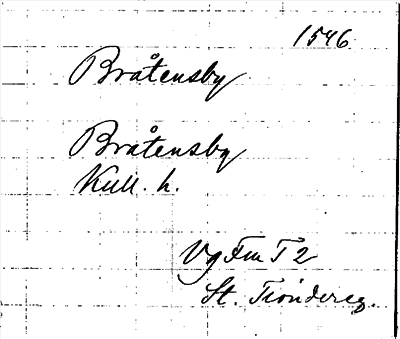 1546
Bråtensby
Bråtensby
Kull. h.
Vg Fm T 2
St.